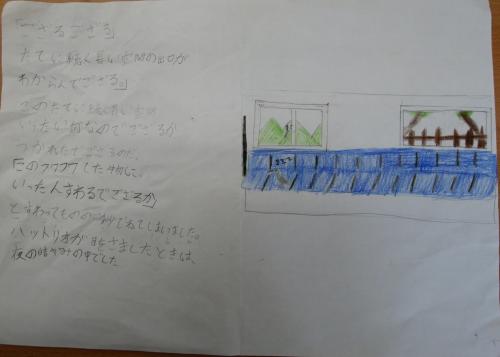 「ござるござる」
たてに続く長い空間の出口が
わからんでござる。」
このたてに長い空間
いったい何なのでござるか
つかれたでござるのだ。
「このフワフワした物に、
いったんすわるでござるか」
とすわってものの秒でねてしまいました。
ハットリオが目をさましたときは、
夜の暗やみの中でした
zzz